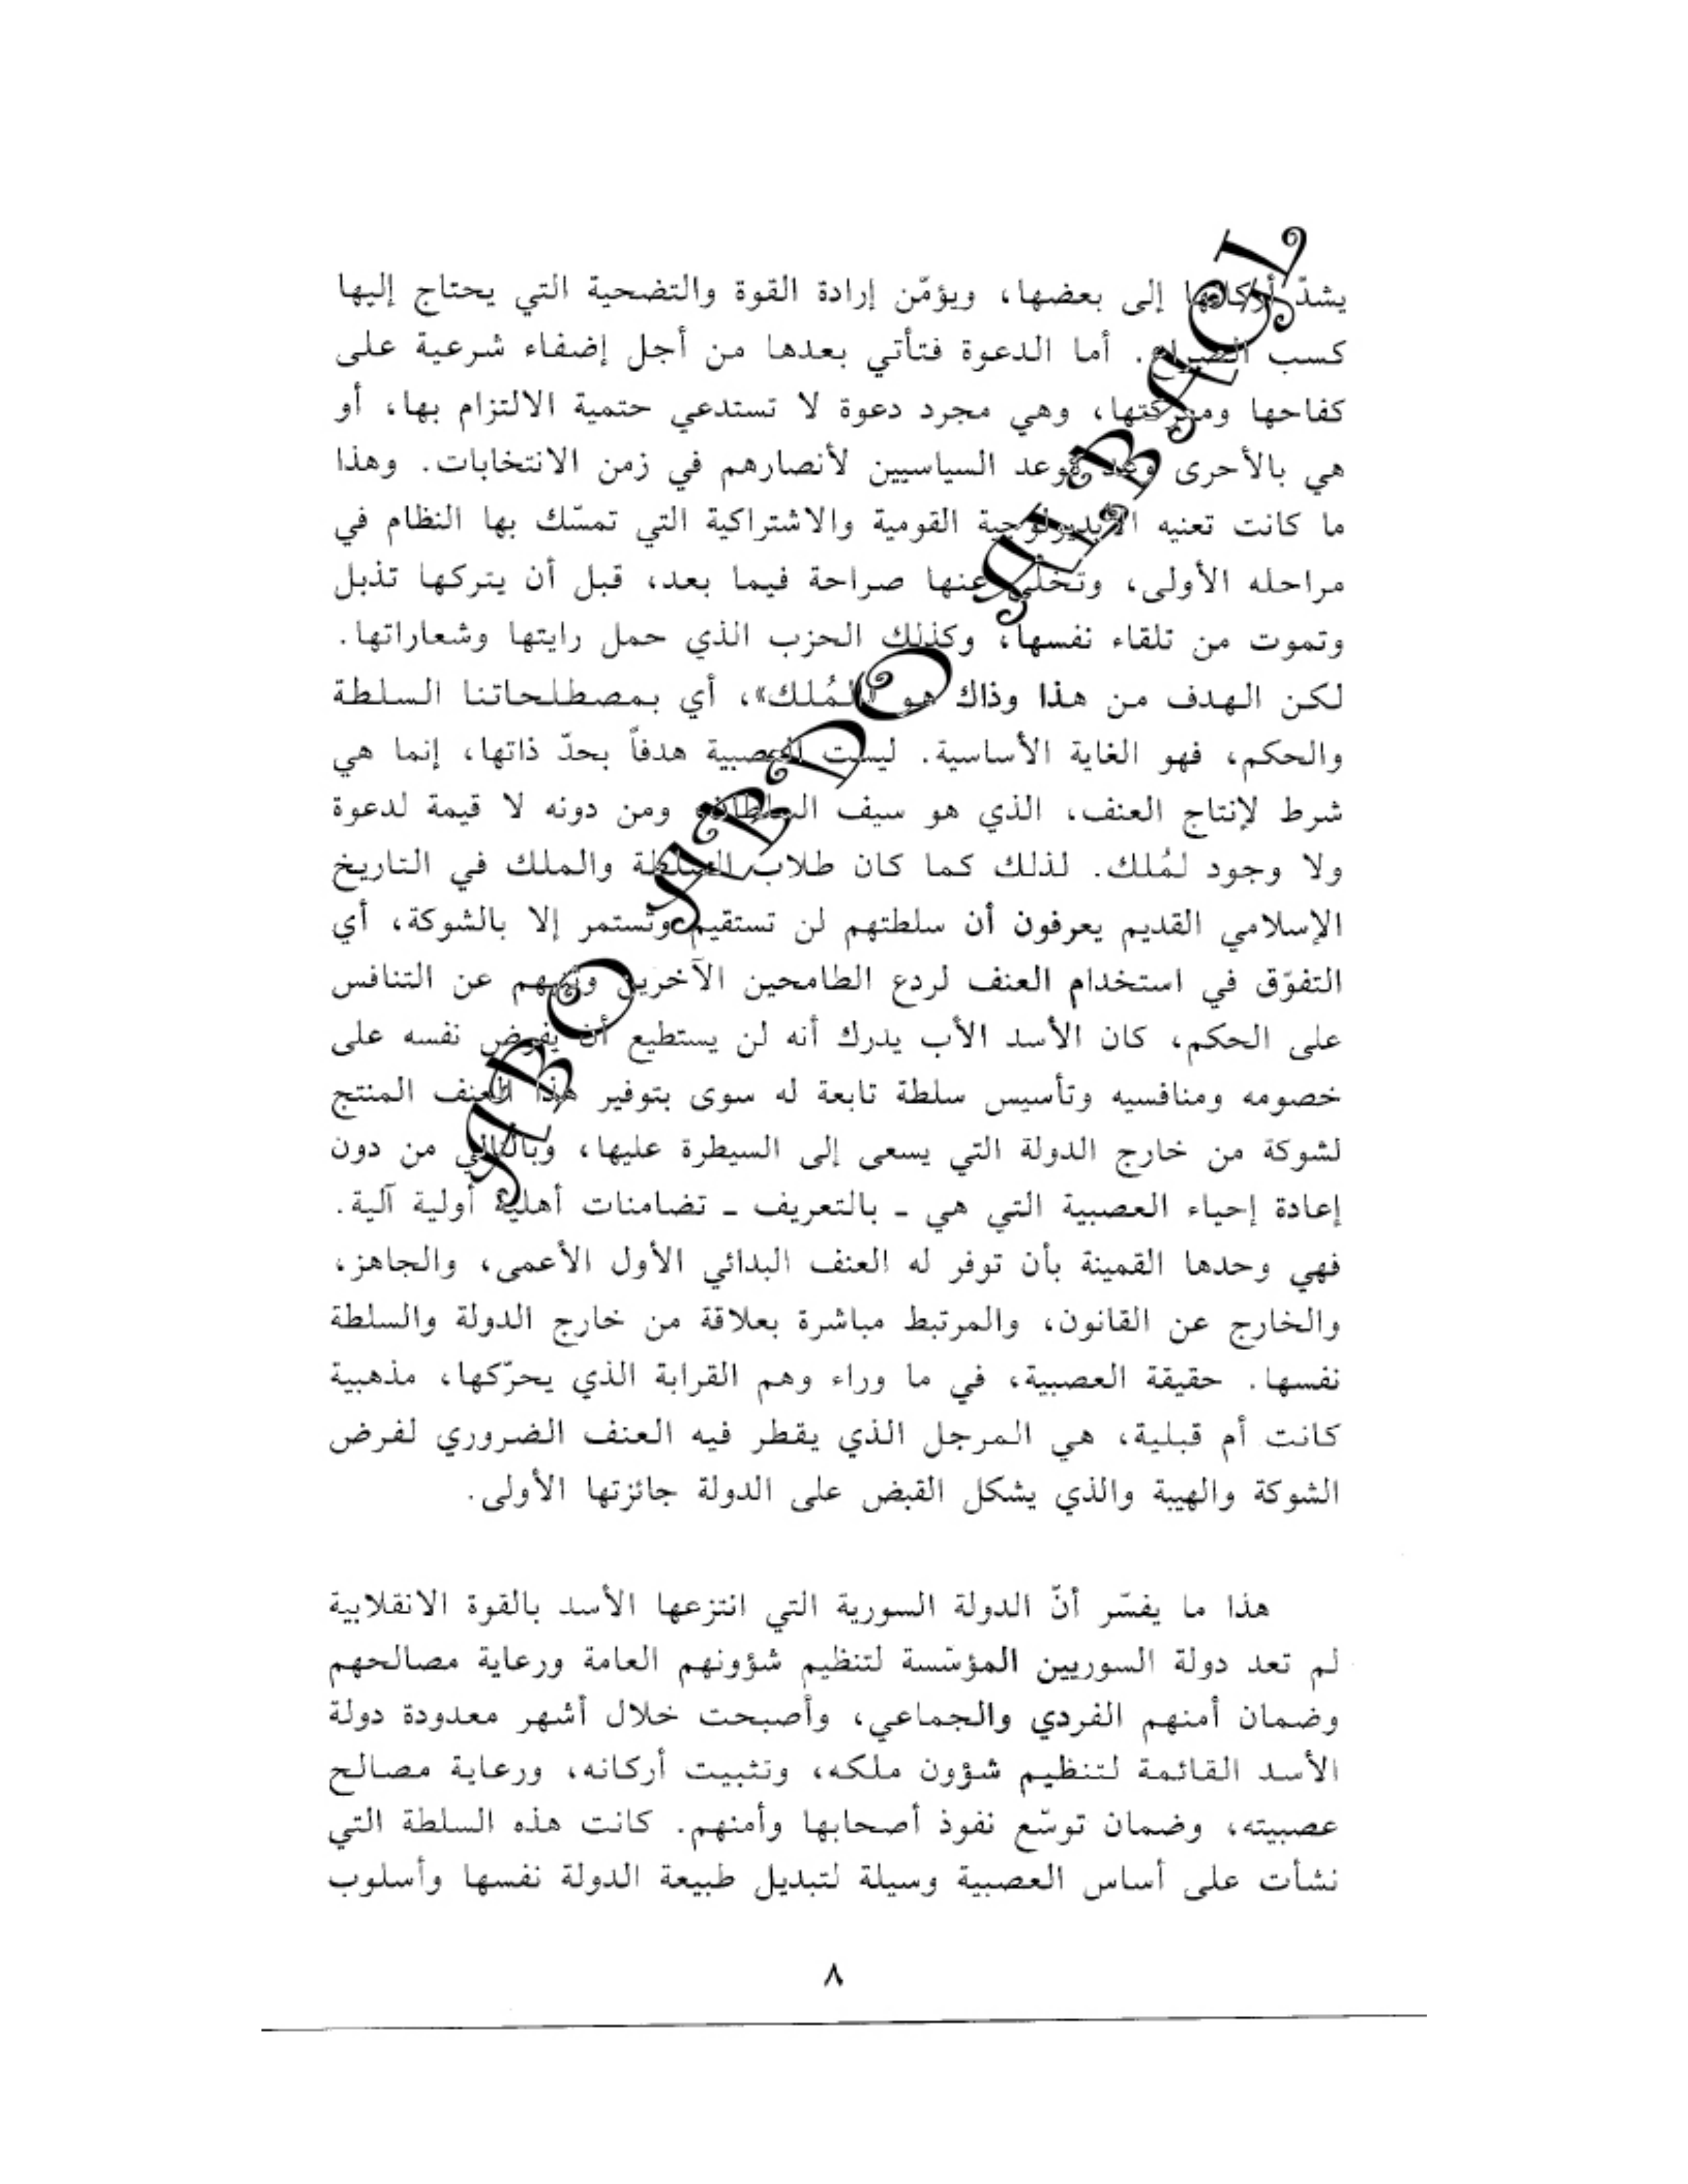 يشدّ أركانها إلى بعضها، ويؤمّن إرادة القوة والتضحية التي يحتاج إليها
كسب الصراع. أما الدعوة فتأتي بعدها من أجل إضفاء شرعية على
كفاحها ومعركتها، وهي مجرد دعوة لا تستدعي حتمية الالتزام بها، أو
هي بالأحرى وعد كوعد السياسيين لأنصارهم في زمن الانتخابات. وهذا
ما كانت تعنيه الأيديولوجية القومية والاشتراكية التي تمسّك بها النظام في
مراحله الأولى، وتخلى عنها صراحة فيما بعد، قبل أن يتركها تذبل
وتموت من تلقاء نفسها، وكذلك الحزب الذي حمل رايتها وشعاراتها.
لكن الهدف من هذا وذاك هو «المُلك»، أي بمصطلحاتنا السلطة
والحكم، فهو الغاية الأساسية. ليست العصبية هدفاً بحدّ ذاتها، إنما هي
شرط لإنتاج العنف، الذي هو سيف السلطان، ومن دونه لا قيمة لدعوة
ولا وجود لمُلك. لذلك كما كان طلاب السلطة والملك في التاريخ
الإسلامي القديم يعرفون أن سلطتهم لن تستقيم وتستمر إلا بالشوكة، أي
التفوّق في استخدام العنف لردع الطامحين الآخرين عن التنافس
على الحكم، كان الأسد الأب يدرك أنه لن يستطيع أن يفرض نفسه على
خصومه ومنافسيه وتأسيس سلطة تابعة له سوى بتوفير هذا العنف المنتج
لشوكة من خارج الدولة التي يسعى إلى السيطرة عليها، وبالتالي من دون
إعادة إحياء العصبية التي هي ـ بالتعريف ـ تضامنات أهلية أولية آلية.
فهي وحدها القمينة بأن توفر له العنف البدائي الأول الأعمى، والجاهز،
والخارج عن القانون، والمرتبط مباشرة بعلاقة من خارج الدولة والسلطة
نفسها. حقيقة العصبية، في ما وراء وهم القرابة الذي يحرّكها، مذهبية
كانت أم قبلية، هي المرجل الذي يقطر فيه العنف الضروري لفرض
الشوكة والهيبة والذي يشكل القبض على الدولة جائزتها الأولى.
هذا ما يفسّر أنّ الدولة السورية التي انتزعها الأسد بالقوة الانقلابية
لم تعد دولة السوريين المؤسّسة لتنظيم شؤونهم العامة ورعاية مصالحهم
وضمان أمنهم الفردي والجماعي، وأصبحت خلال أشهر معدودة دولة
الأسد القائمة لتنظيم شؤون ملكه، وتثبيت أركانه، ورعاية مصالح
عصبيته، وضمان توسّع نفوذ أصحابها وأمنهم. كانت هذه السلطة التي
نشأت على أساس العصبية وسيلة لتبديل طبيعة الدولة نفسها وأسلوب
٨
ABO ABDO ALBAGL